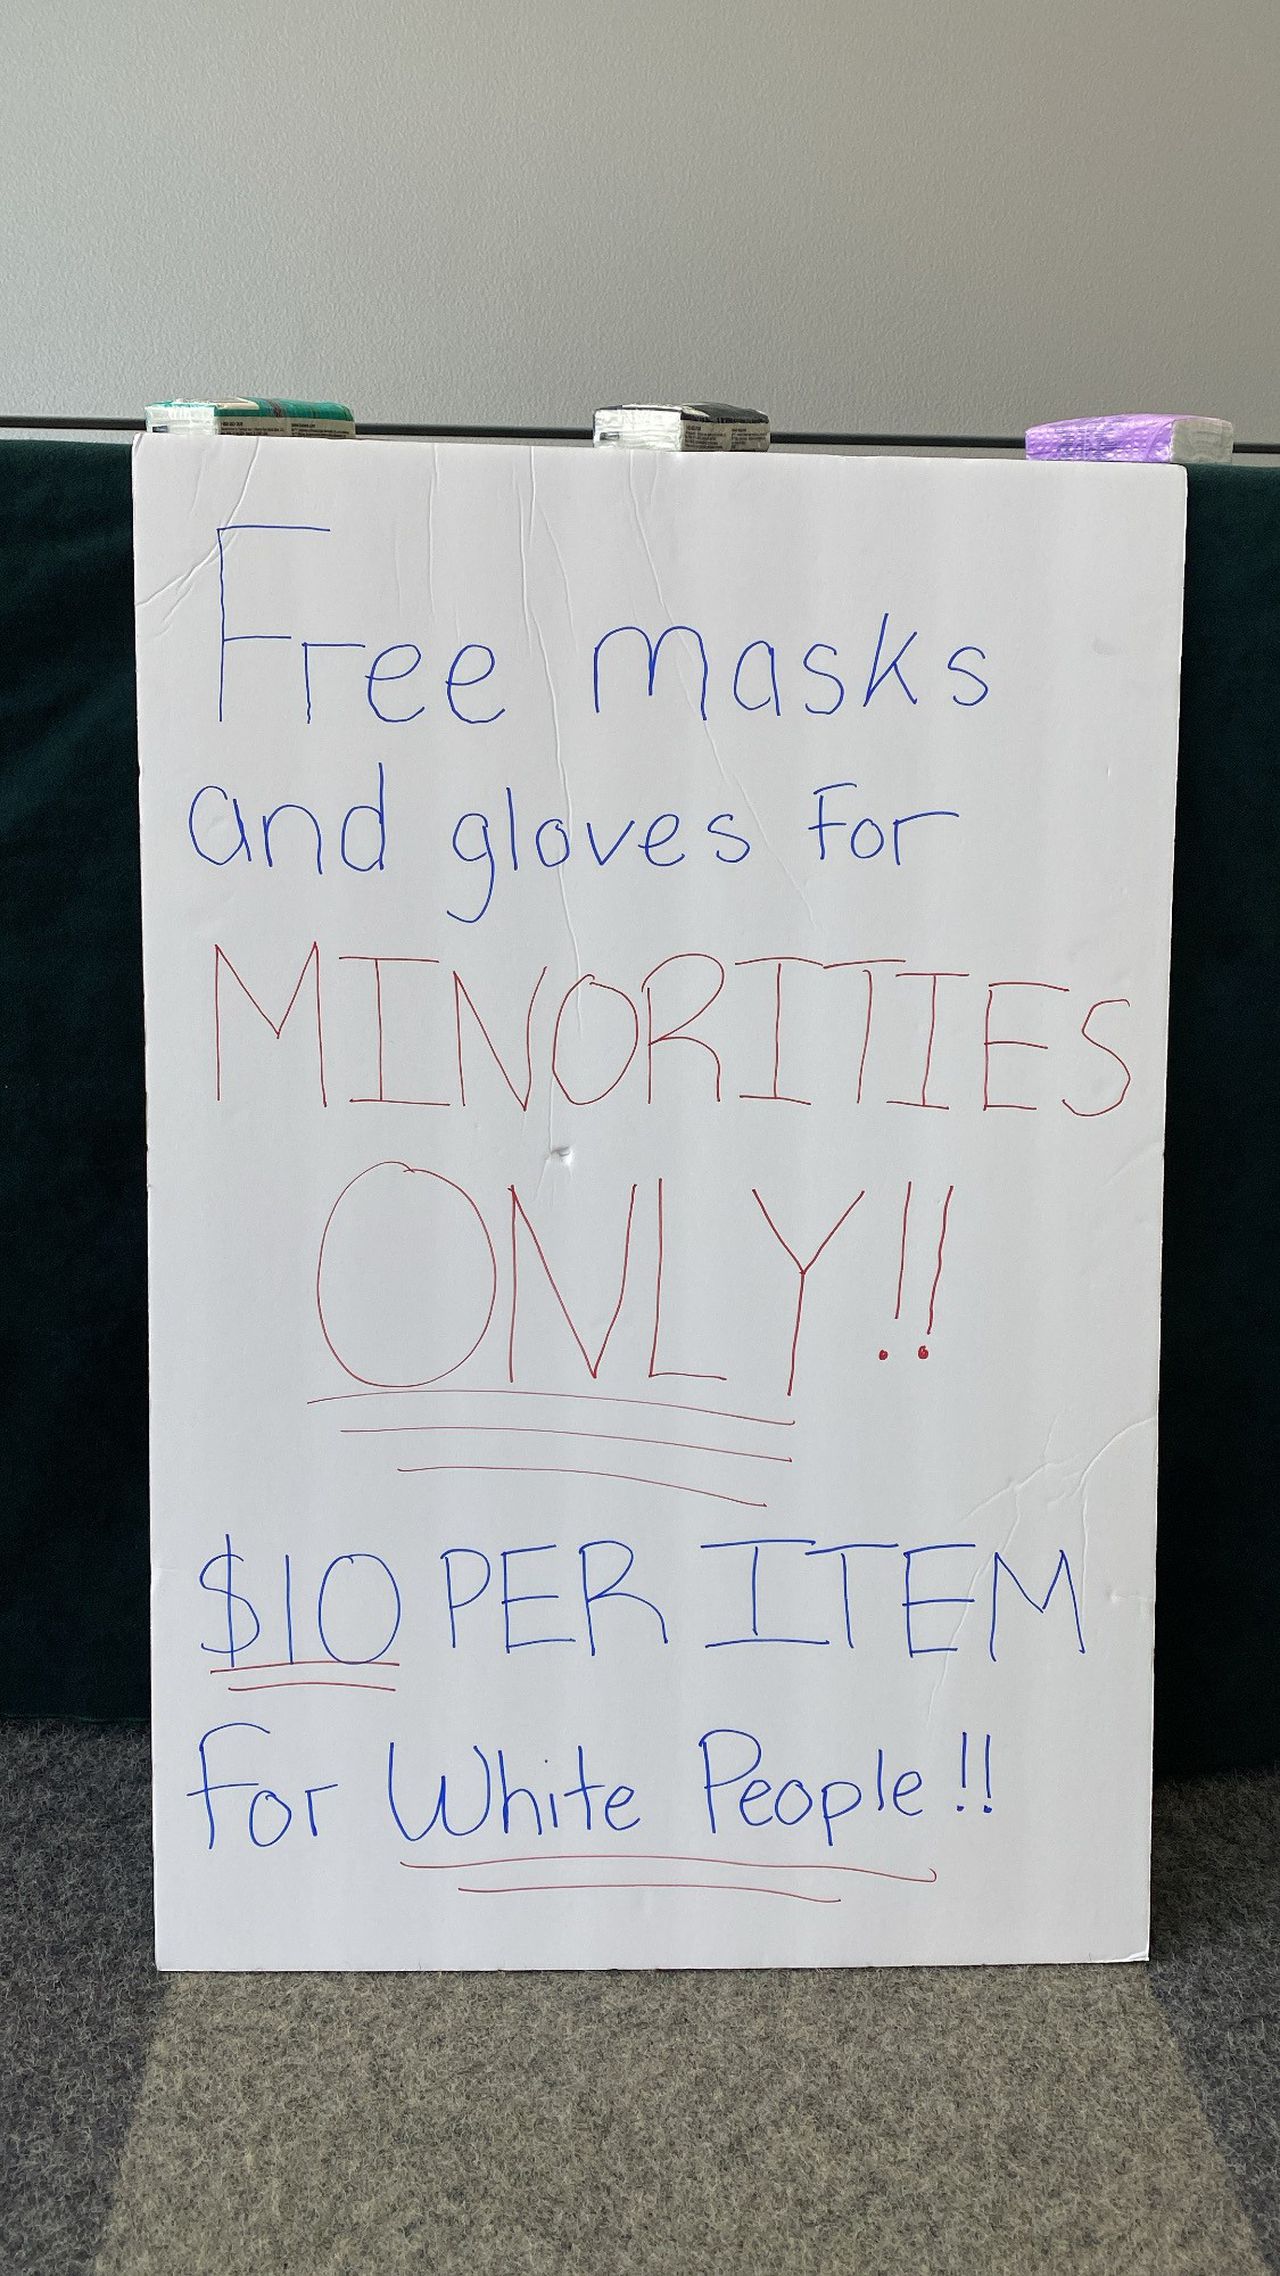 Free masks
and gloves for
MINORITIES
ONLY!!
$10 PER ITEM
for White People!!